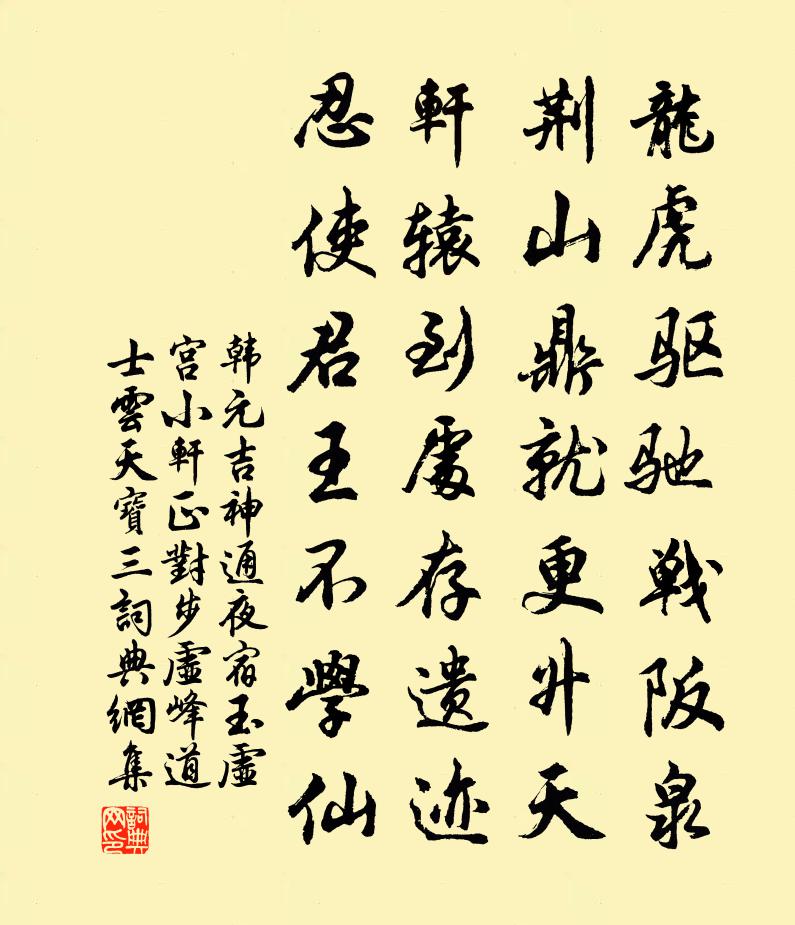 龍虎驱驰戦阪泉
荆山鼎就更升天
軒辕到處存遗迹
忍使君王不學仙
韩元吉神通夜宿玉虛
宫小軒正對步虛峰道
士雲天寶三詞典網集
詞典網印